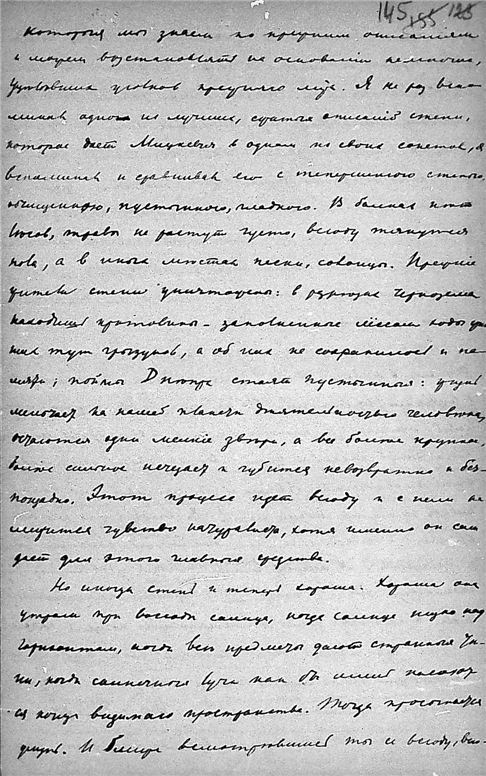 145 155 125
которыя мы знаем по прежним описаниям
и можем возстановлять на основании немногих,
уцелевших уголков прежнего мiра. Я не раз вспо
минал одно из лучших, сжатых описанiй степи,
которое дает Мицкевич в одном из своих сонетов, я
вспоминал и сравнивал его с теперешнего степью,
обнищенною, пустынною, гладкого. В балках нет
лесов, травы не растут густо, всюду тянутся
поля, а в иных местах пески, солонцы. Прежние
жители степи уничтожены: в разрезах чернозема
находишь кротовины - заполненные лёссом ходы
них тут грызунов, а об них не сохранилось и па
мяти; поймы Днепра стоят пустынныя:
на нашей планеты деятельностью человека,
остаются одни мелкие звери, а все более крупное,
более сильное исчезает и губится невозвратно и без-
пощадно. Этот процесс идет всюду и с ним не
мирится чувство натуралиста, хотя именно он сам
дает для этого главныя средства.
Но иногда степь и теперь хороша. Хороша она
утрами при восходе солнца, когда солнце низко над
горизонтом, когда все предметы дают странныя те-
ни, когда солнечного луча как бы имеет касают
ся конца видимаго пространства. Тогда просыпается
И больше всматриваешься ты и всюду, все-